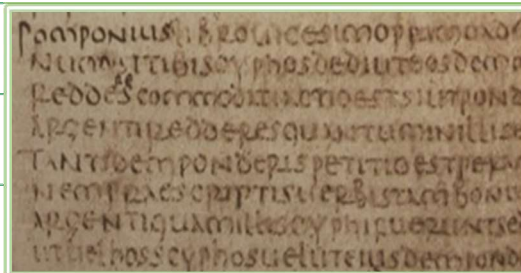 pomponiuslibrouicesimoprimoad
numsitibiscyphosdediuteosdem
redderescommodatiactioestsiutpond
argentiredderesquantuminillise
tantidemponderispetitioestpera
nempraescriptisuerbistamboni
argentiquamilliscyphifueruntse
ututelhosscyphosueluteiusdempond